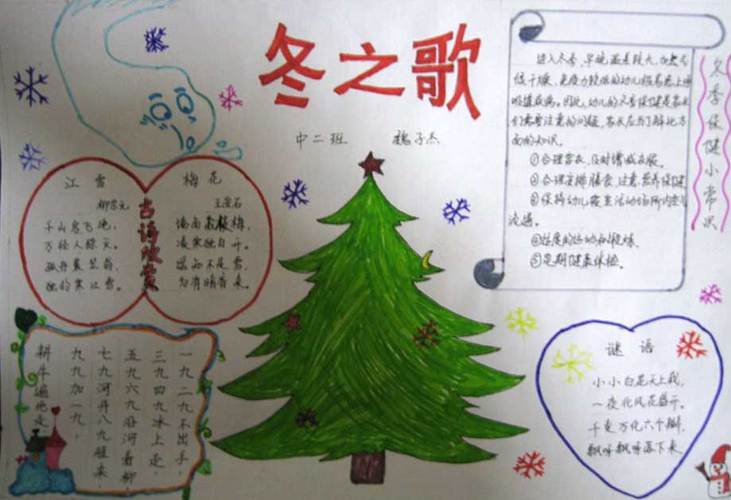 冬之歌
中二班 魏子杰
江雪
柳宗元
千山鸟飞绝,
万径人踪灭。
孤舟蓑笠翁,
独钓寒江雪。
古诗欣赏
梅花
王安石
墙角数枝梅,
凌寒独自开。
遥知不是雪,
为有暗香来。
进入冬季,早晚温差较大,加之天
干燥,免疫力较低的幼儿很容易患上呼
吸道疾病。因此,幼儿的冬季保健是家长
们需要注意的问题,家长应当了解此方
面的知识。
①合理穿衣,及时增减衣服。
②合理安排膳食,注意营养保健。
③保持幼儿生活动场所内空气
流通。
④适度的运动和锻炼。
⑤定期健康体检。
冬季保健小常识
一九二九不出手,
三九四九冰上走,
五九六九沿河看柳,
七九河开八九雁来,
九九加一九,
耕牛遍地走
谜语
小小白花天上栽,
一夜北风花盛开。
千变万化六个瓣,
飘呀飘呀落下来